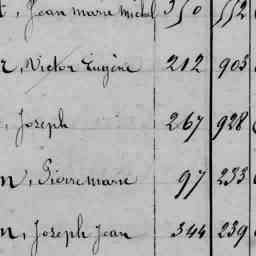 , Jean marie Michel 350 552
r, Victor Eugène 212 903
, Joseph 267 928
n, Pierre marie 97 233
n, Joseph Jean 344 239